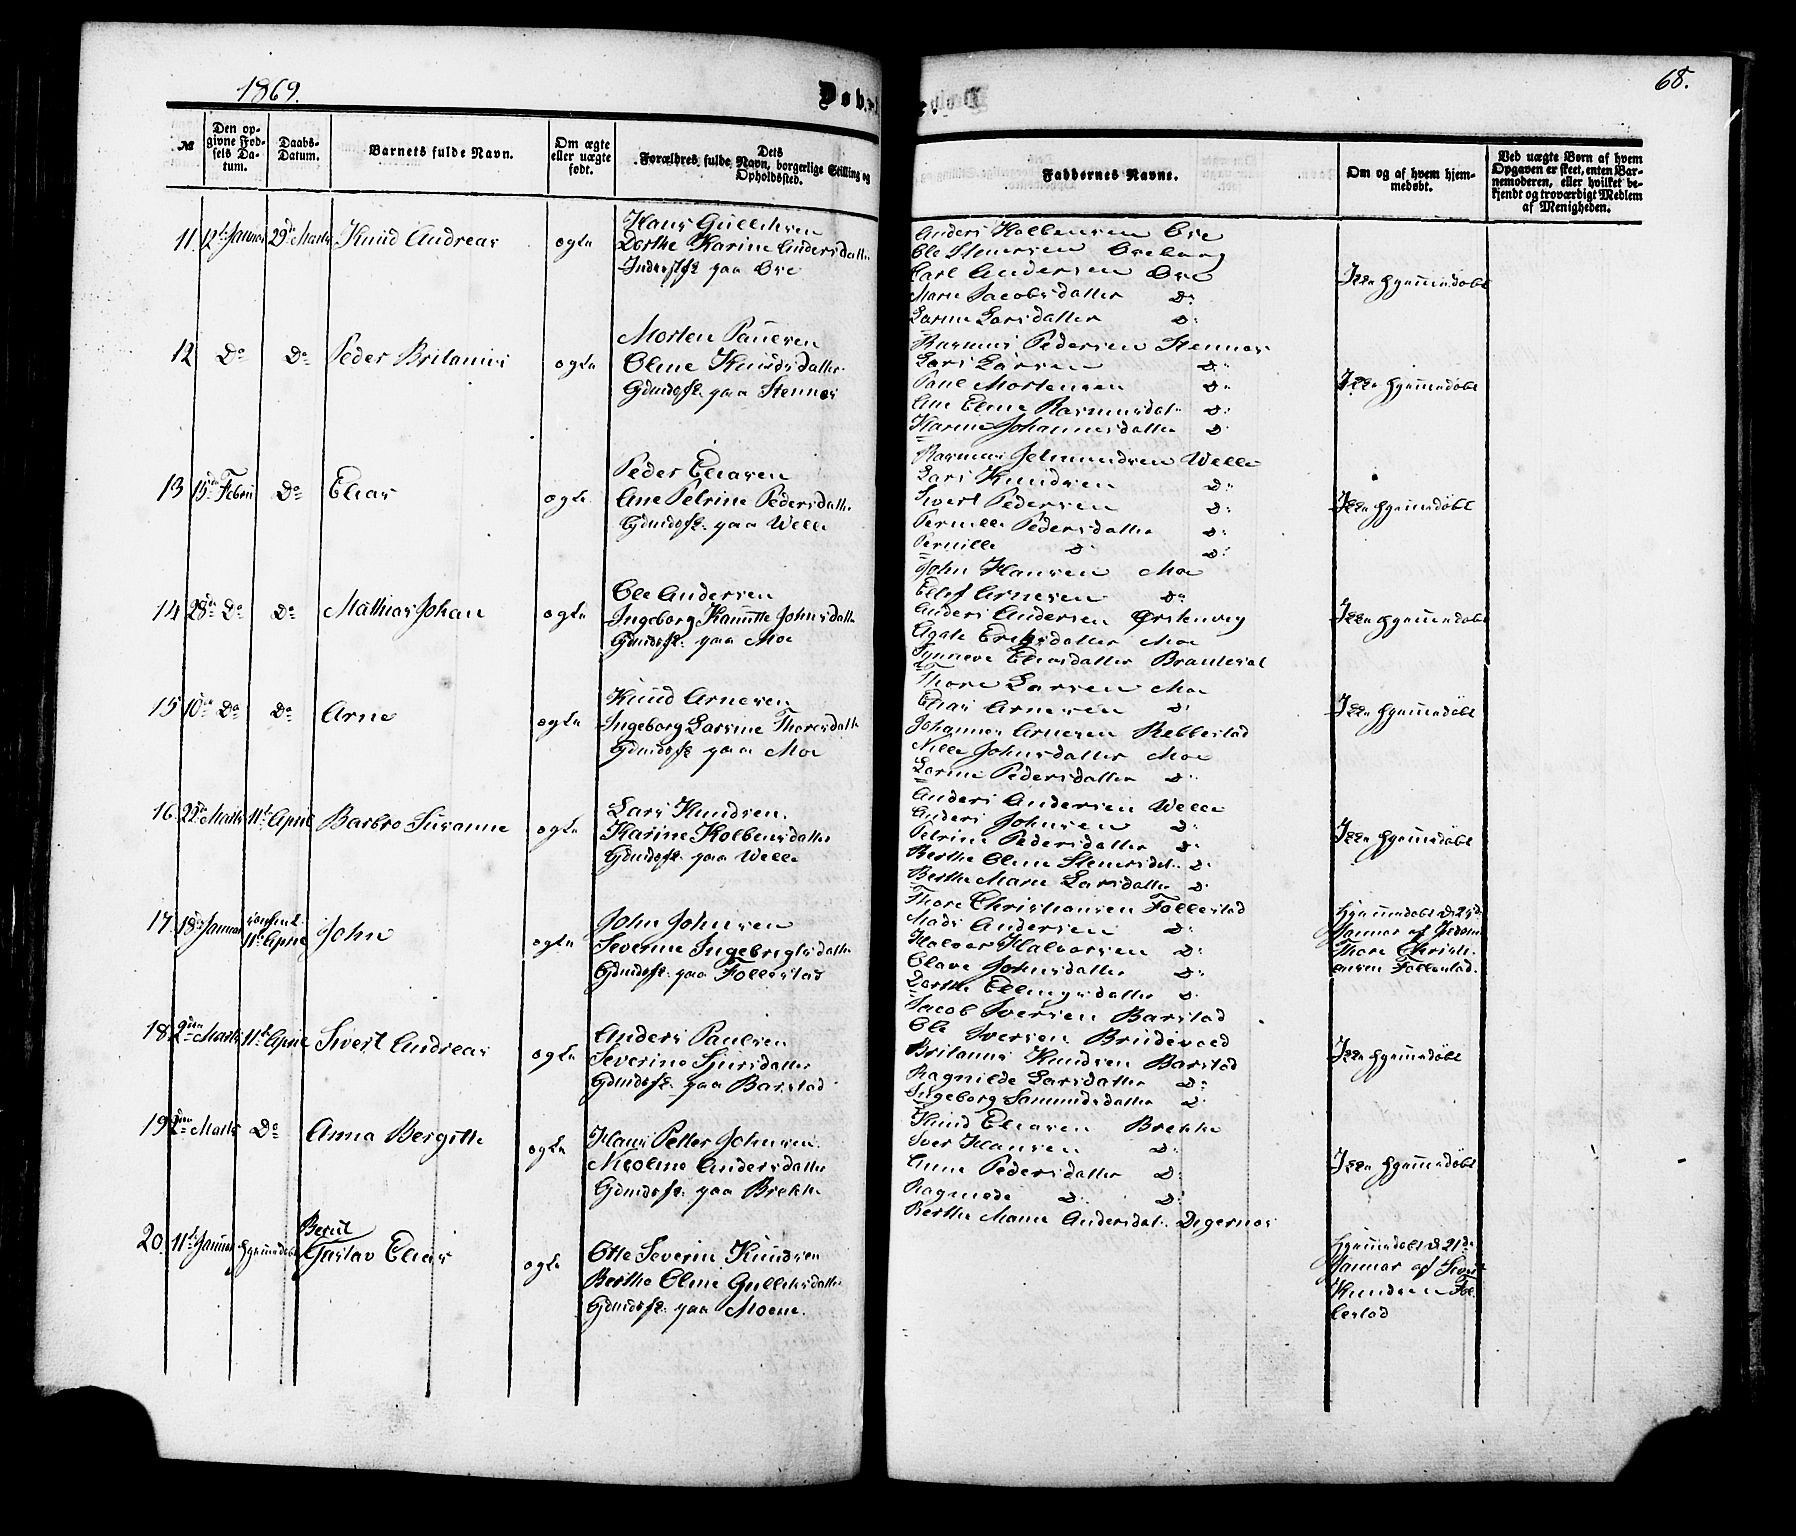 1869.
Døbte.
68.
№
Den opgivne Fødsels Datum.
Daabs-Datum.
Barnets fulde Navn.
Om ægte eller uægte født.
Dets Forældres fulde Navn, borgerlige Stilling og Opholdssted.
Faddernes Navne.
Om og af hvem hjemmedøbt.
Ved uægte Børn af hvem Opgaven er skeet, enten Barnemoderen, eller hvilket bekjendt og troværdigt Medlem af Menigheden.
11 12te Januar 29de Marts Knud Andreas ægte
Hans Gulliksen
Dorthe Karine Andersdatter
Inderstfk paa Øre
Anders Kolbensen Øre
Ole Stenersen Øreborg
Carl Andersen Øre
Marie Jacobsdatter Do
Larine Larsdatter Do
Ikke hjemmedøbt
12 Do Do Peder Britanius ægte
Morten Paulsen
Oline Knudsdatter
Gdmdsfk. paa Stennes
Rasmus Pedersen Stennes
Lars Larsen Do
Paul Mortensen Do
Ane Eline Rasmusdat. Do
Karine Johannesdatter Do
Ikke hjemmedøbt
13 15de Febru Do Elias ægte
Peder Eliasen
Ane Petrine Pedersdatter
Gdmdsfk. paa Welle
Rasmus Jetmundsen Welle
Lars Knudsen Do
Sivert Pedersen Do
Pernille Pedersdatter Do
Pernille Do Do
Ikke hjemmedøbt
14 28de Do Do Mathias Johan ægte
Ole Andersen
Ingeborg Kanutte Johnsdatter
Gdmdsfk. paa Moe
John Hansen Moe
Ellef Arnesen Do
Anders Andersen Ørstenvig
Agate Eriksdatter Moe
Synneve Eliasdatter
Ikke hjemmedøbt
15 10de Do Do Arne ægte
Knud Arnesen
Ingeborg Larsine Thoresdatter
Gdmdsfk paa Moe
Thore Larsen Moe
Elias Arnesen Do
Johannes Arnesen Rebbestad
Nille Johnsdatter Moe
Larine Pedersdatter Do
Ikke hjemmedøbt
16 22de Marts 11te April Barbro Susanne ægte
Lars Knudsen
Karine Kolbensdatter
Gdmdsfk. paa Welle
Anders Andersen Welle
Anders Johnsen Do
Petrine Pedersdatter Do
Berthe Oline Stenersdat. Do
Berthe Marie Larsdatter Do
Ikke hjemmedøbt
17 18de Januar 11te April John ægte
John Johnsen
Severine Ingebrigtsdatter
Gdmdsfk. paa Follestad
Thore Christiansen Follestad
Mads Andersen Do
Halvor Halvorsen Do
Olave Johnsdatter Do
Dorthe Ellingsdatter Do
Hjemmedøbt d
Januar af
Thore Christi-
ansen Follestad
18 2den Marts 11te April Sivert Andreas ægte
Anders Paulsen
Severine Sjursdatter
Gdmdsfk. paa Barstad
Jacob Iversen Barstad
Ole Iversen
Britanus Knudsen Barstad
Ragnilde Larsdatter Do
Ingeborg Samundsdatter Do
Ikke hjemmedøbt
19 2den Marts Do Anna Bergitte ægte
Hans Petter Johnsen
Nicoline Andersdatter
Gdmdsfk. paa Brekke
Knud Eliasen Brekke
Iver Hansen Do
Anne Pedersdatter Do
Do Do
Berthe Marie Andersdat. Digernes
Ikke hjemmedøbt
20 11te Januar hjemmedøbt Bernt
Gustav Elias ægte
Otte Severin Knudsen
Berthe Oline Gulliksdatter
Gdmdsfk. paa Moene.
Hjemmedøbt d 21de
Januar af Sivert
Knudsen Fol-
lestad